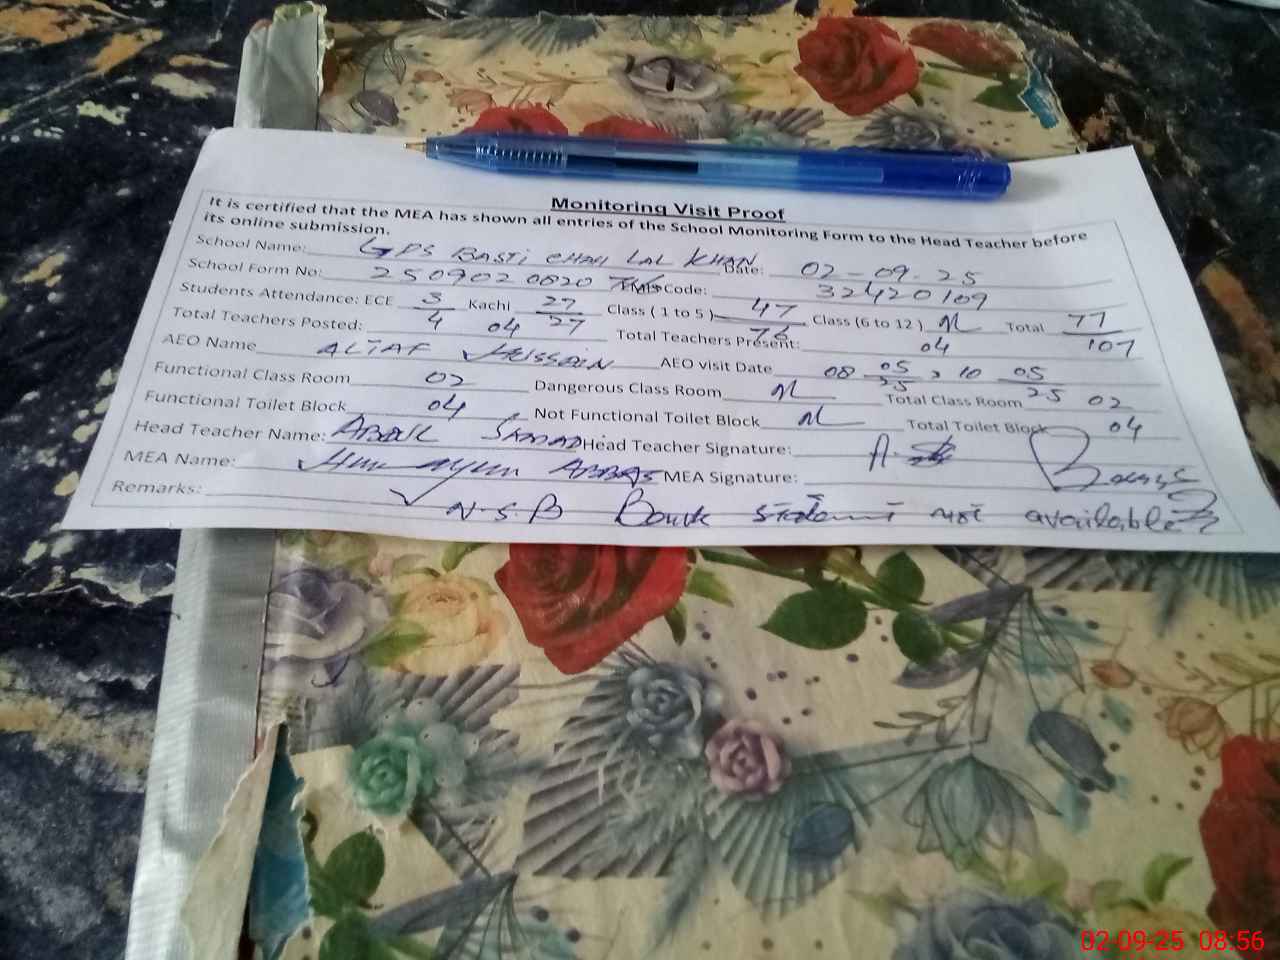 Monitoring Visit Proof
It is certified that the MEA has shown all entries of the School Monitoring Form to the Head Teacher before
its online submission.
School Name: GPS BASTI CHAH LAL KHAN Date: 02-09-25
School Form No: 250902 0820 Code: 32420109
Students Attendance: ECE 3/4 Kachi 27/27 Class ( 1 to 5 ) 47/76 Class (6 to 12) Total 77/107
Total Teachers Posted: 04 Total Teachers Present: 04
AEO Name ALTAF HUSSAIN AEO visit Date 08 05/25, 10 05/25
Functional Class Room 02 Dangerous Class Room Total Class Room 02
Functional Toilet Block 04 Not Functional Toilet Block Total Toilet Block 04
Head Teacher Name: ABDUL SAMAD Head Teacher Signature:
MEA Name: Humayun ABBAS MEA Signature:
Remarks: N.S.B not available
02-09-25 08:56